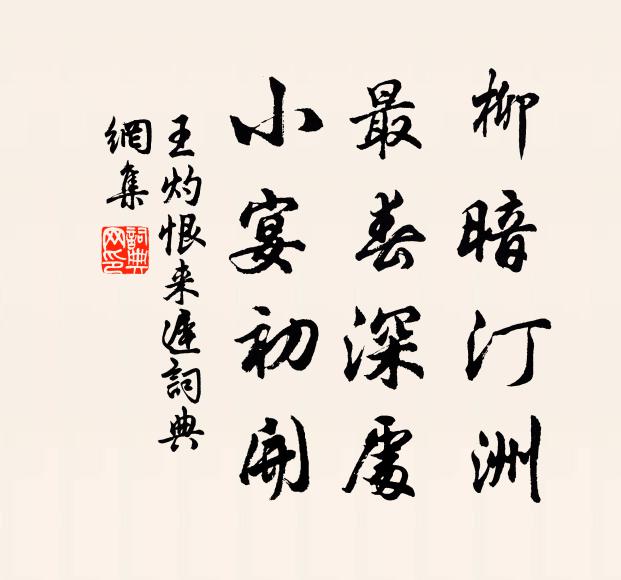 柳暗汀洲
最春深處
小宴初開
王灼恨来遲詞典
網集
詞典
网印